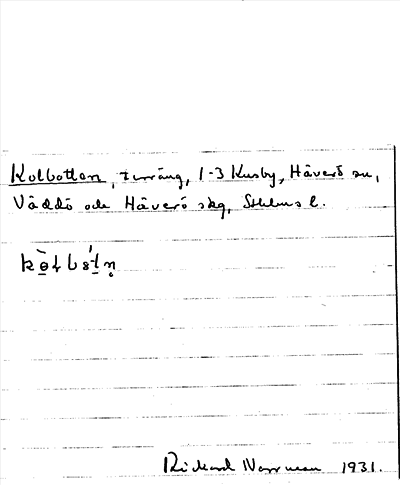 Kolbotten, terräng, 1-3 Kusby, Häverö sn,
Väddö och Häverö skg, Sthlms l.
Rickard Norrman 1931.